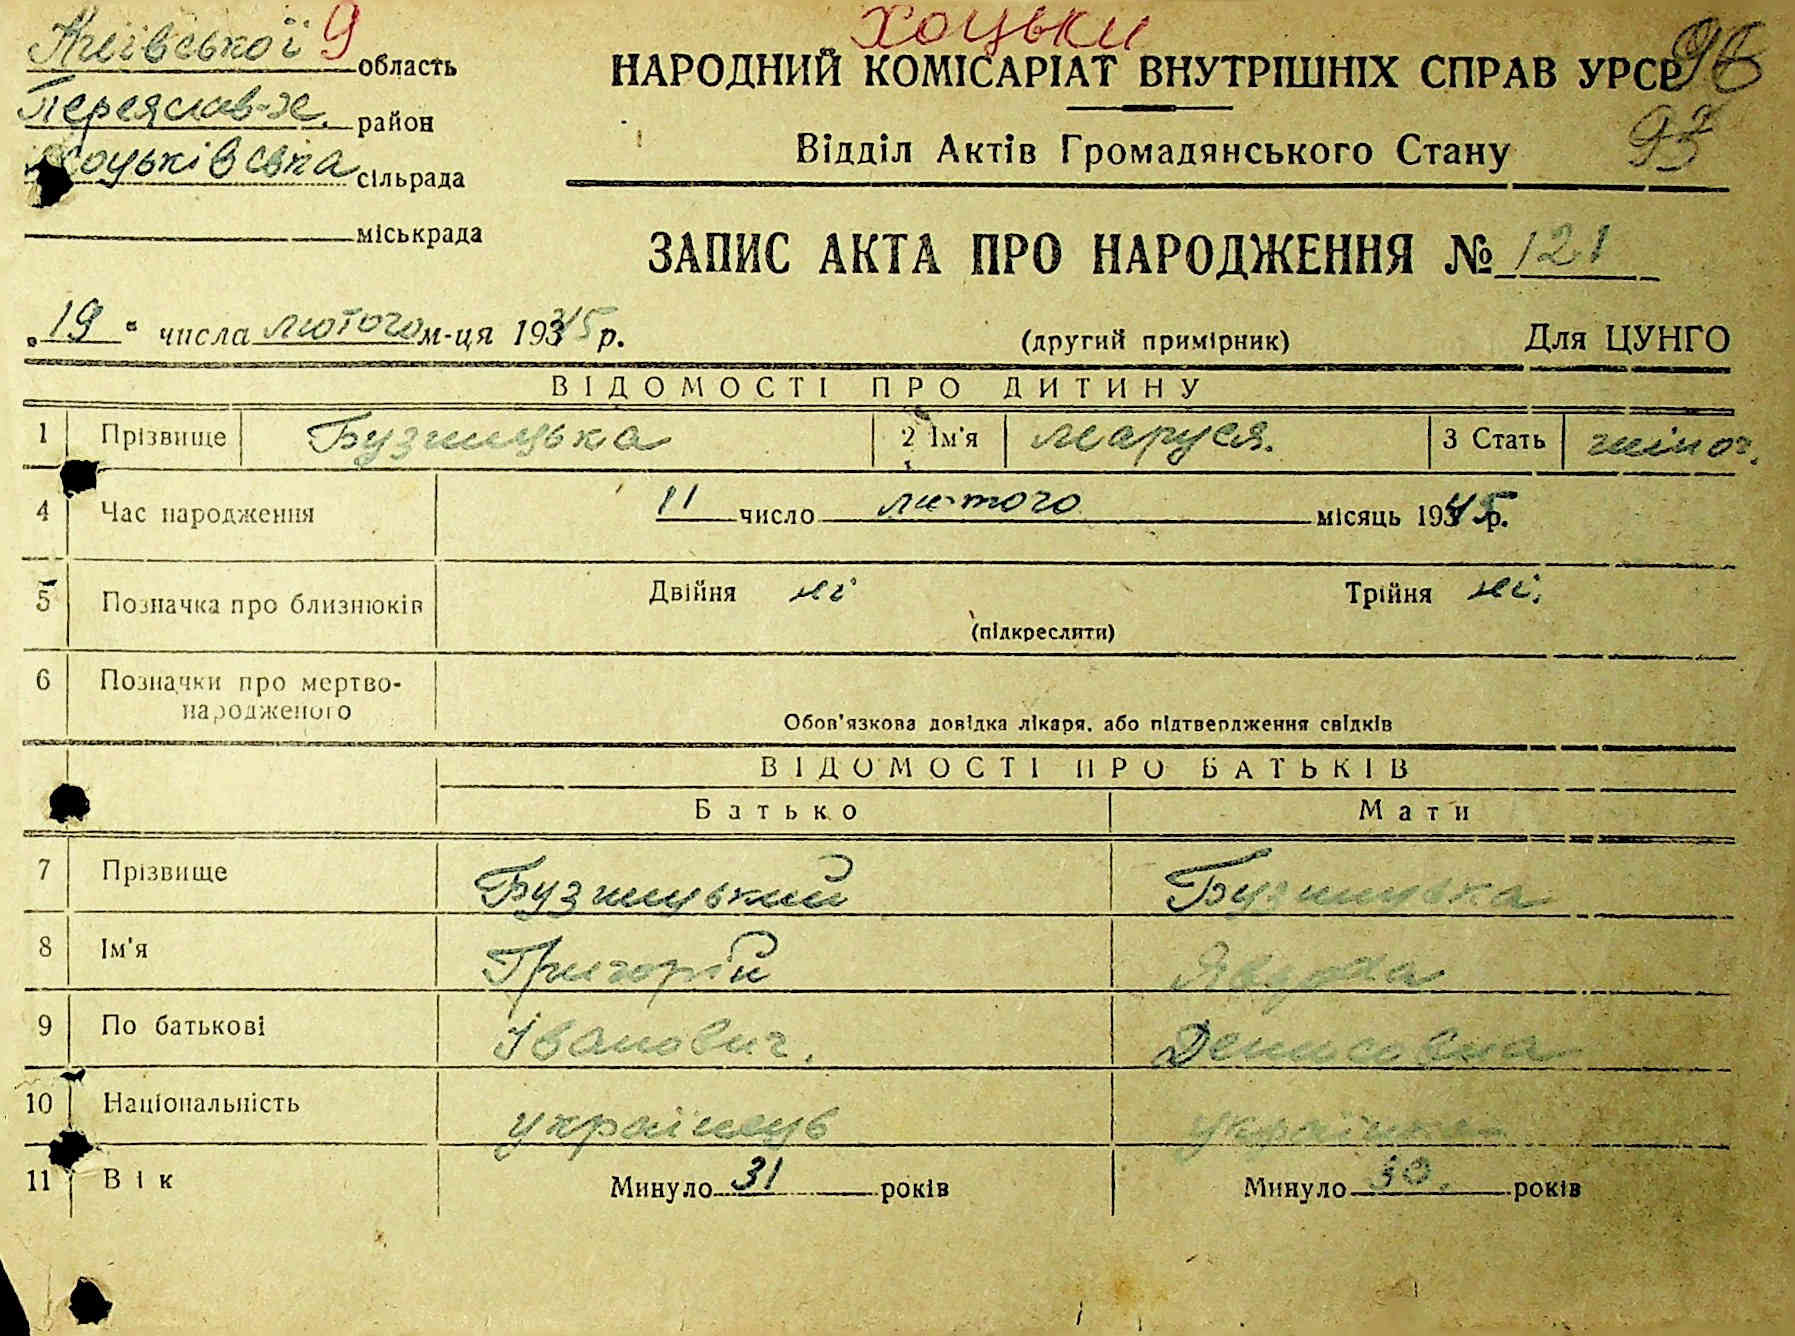 Хоцьки
Київської 9 область
НАРОДНИЙ КОМІСАРІАТ ВНУТРІШНІХ СПРАВ УРСР
Переяслав-Х. район
Відділ Актів Громадянського Стану
Хоцьківська сільрада
міськрада
ЗАПИС АКТА ПРО НАРОДЖЕННЯ № 121
„19“ числа лютого м-ця 1945 р. (другий примірник) Для ЦУНГО
ВІДОМОСТІ ПРО ДИТИНУ
1 Прізвище Бузницька 2 Ім'я Маруся. 3 Стать жіноч.
4 Час народження 11 число лютого місяць 1945 р.
5 Позначка про близнюків Двійня ні Трійня ні.
(підкреслити)
6 Позначки про мертво-
народженого
Обов'язкова довідка лікаря, або підтвердження свідків
ВІДОМОСТІ ПРО БАТЬКІВ
Батько Мати
7 Прізвище Бузницький Бузницька
8 Ім'я Григорій Явдоха
9 По батькові Іванович. Денисовна
10 Національність українець українка
11 Вік Минуло 31 років Минуло 30. років